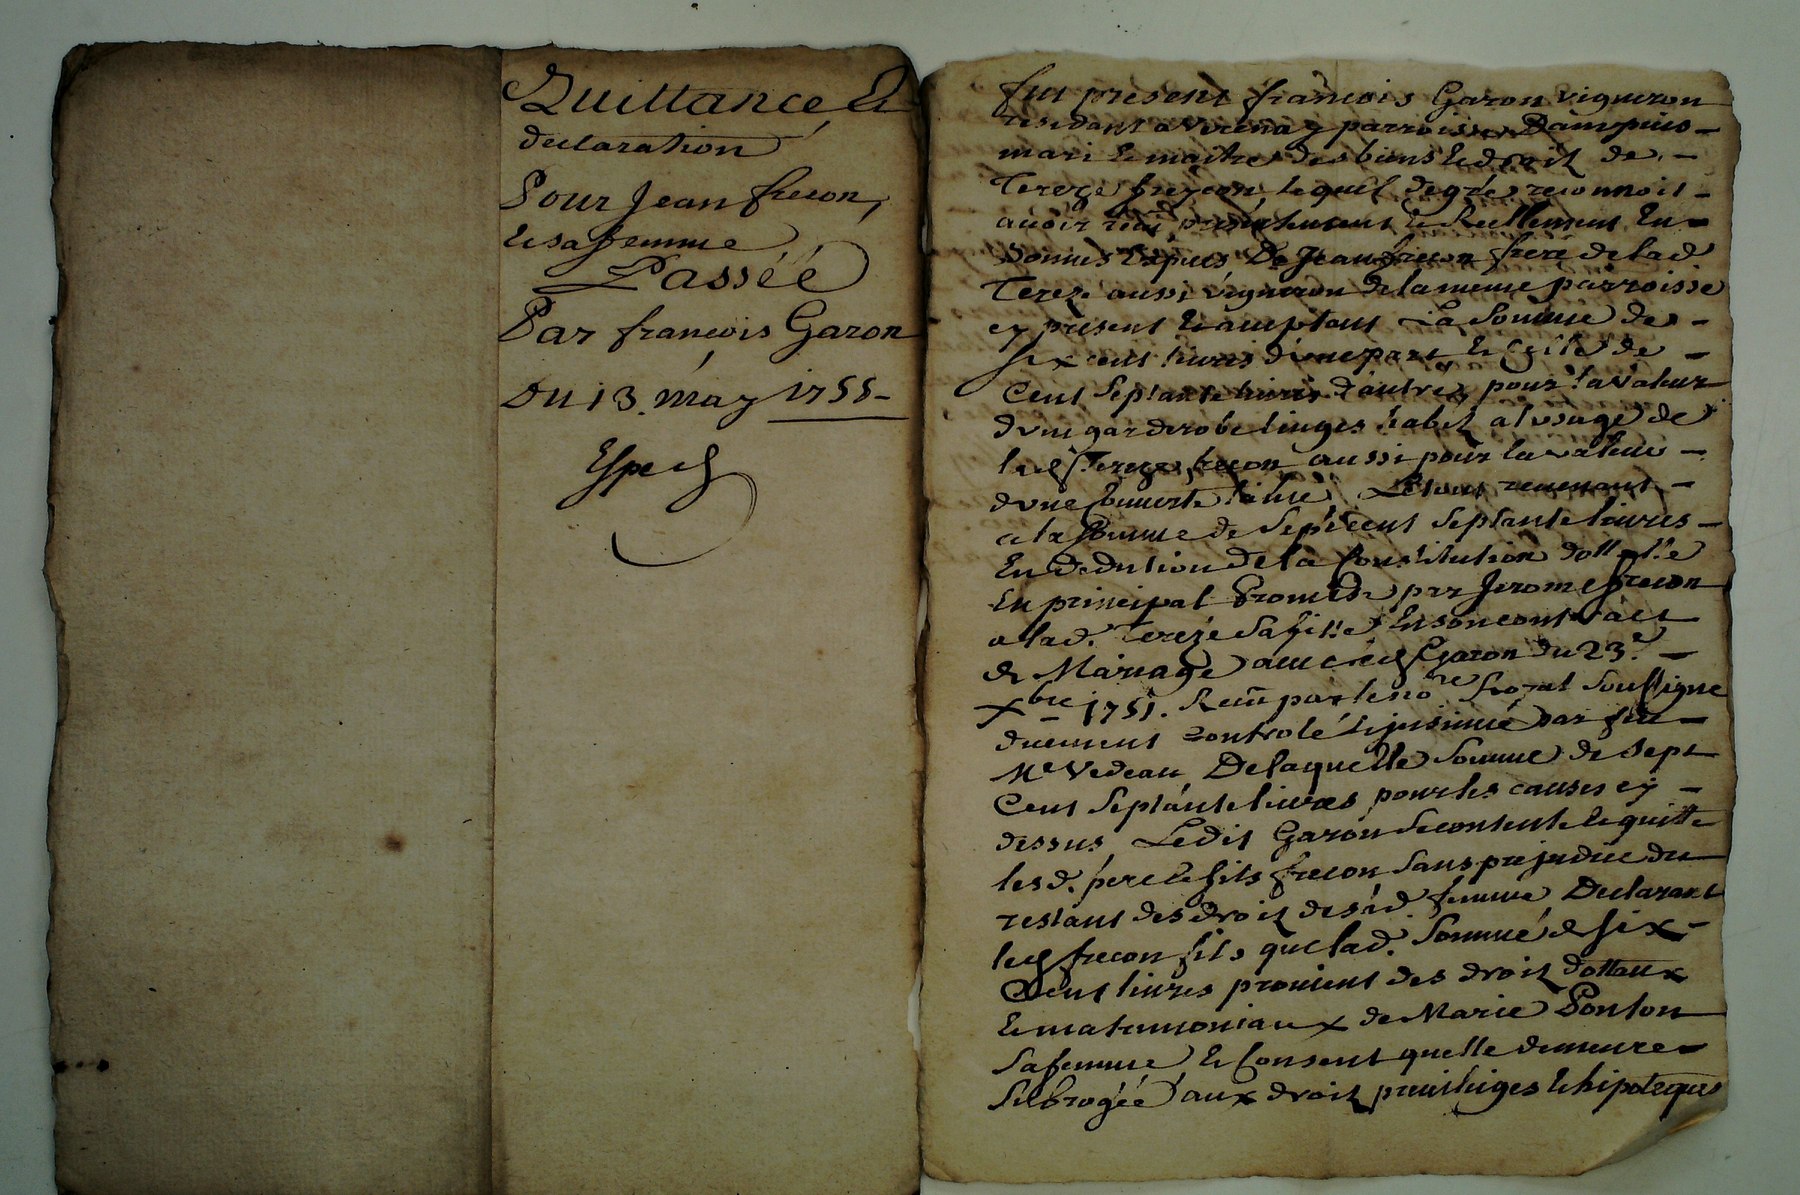 Quittance, Et
declaration
Pour Jean frecon,
et sa femme
Passée
Par francois Garon
Du 13. may 1755-
Exped
fut present francois Garon vigneron
residant a Verenay parroisse Dampuis
mari et maitre des biens et droit de
Tereze frezcon, lequel de gré reconnoit
avoir recu presentement et Reellement En
Bonnes Espèces De Jean frecon frere de lad
Tereze aussi vigneron de la meme parroisse
cy present et acceptant La Somme de
six cent livres d'une part et celle de
Cent septante livres d'autre, pour la valeur
d'vne garderobe linges habit a l'vsage de
lad Tereze frecon aussi pour la valeur
dvne Couverte laine, Le tout revenant
a la somme de sept cent septante livres
En dedution de la Constitution dottalle
En principal Promise par Jerome frecon
a lad. Tereze sa fille En son contract
de Mariage avec led Garon du 23.e
Xbre 1751. Recu par le no.re Royal soussigne
duement controlé et jnsinué par feu
Me Vedeau De laquelle somme de sept
Cent septante livres pour les causes cy
dessus Ledit Garon se contente et quitte
lesd. pere et fils frecon sans prejudice du
restant des droit de sad femme Declarant
led frecon fils que lad. somme de six
Cent livres provient des droit dottaux
et matrimoniaux de Marie Ponton
sa femme et Consent quelle demeure
subrogée aux droit privilieges et hipoteques